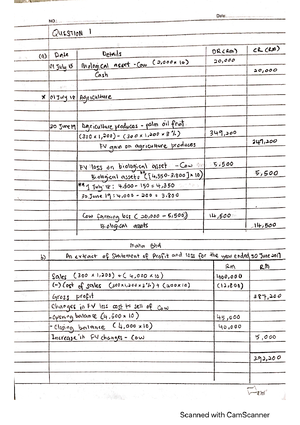 NO.: Date:
QUESTION 1
(a) Date Details DR (RM) CR (RM)
01 July 18 Biological asset - Cow (2,000 x 10) 20,000
Cash 20,000
x 01 July 18 Agriculture
20 June 19 Agriculture produces - palm oil fruit
(300 x 1,200) - (300 x 1,200 x 3%) 349,200
FV gain on agriculture produces 349,200
FV loss on biological asset - Cow 5,500
Biological assets ** [(4,350 - 3,800) x 10] 5,500
** 1 July 18 : 4,500 - 150 = 4,350
30 June 19 : 4,000 - 200 = 3,800
Cow farming loss (20,000 - 5,500) 14,500
Biological assets 14,500
b) An extract of statement of Profit and loss for the year ended 30 June 2019
RM RM
Sales (300 x 1,200) + (4,000 x 10) 400,000
(-) Cost of sales
Gross profit 387,200
Changes in FV less cost to sell of cow
- Opening balance (4,500 x 10) 45,000
- Closing balance (4,000 x 10) 40,000
Increase in FV changes - cow 5,000
392,200
Scanned with CamScanner